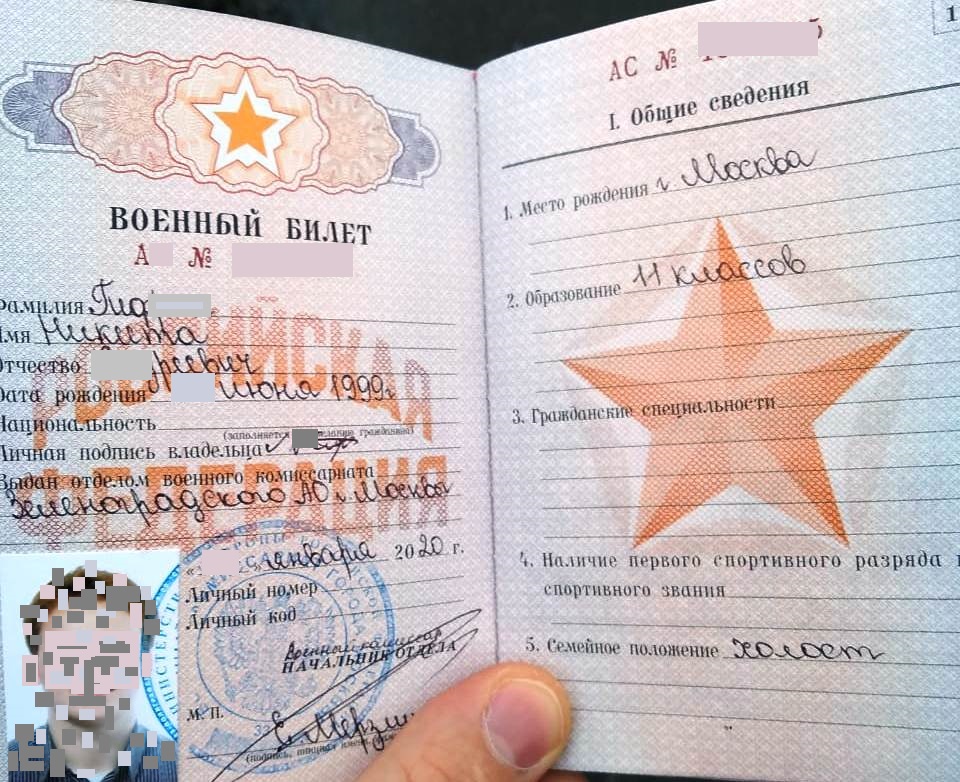 ВОЕННЫЙ БИЛЕТ
А №
Фамилия Гид
Имя Никита
Отчество реевич
Дата рождения июня 1999г
Национальность
(заполняется гражданина)
Личная подпись владельца
Выдан отделом военного комиссариата
Зеленоградского АО г. Москвы
РОССИЙСКАЯ
ФЕДЕРАЦИЯ
« » января 2020 г.
Личный номер
Личный код
Военный комиссар
НАЧАЛЬНИК ОТДЕЛА
М. П.
Е. Мерзли
1
АС №
I. Общие сведения
1. Место рождения г. Москва
2. Образование 11 классов
3. Гражданские специальности
4. Наличие первого спортивного разряда
спортивного звания
5. Семейное положение холост